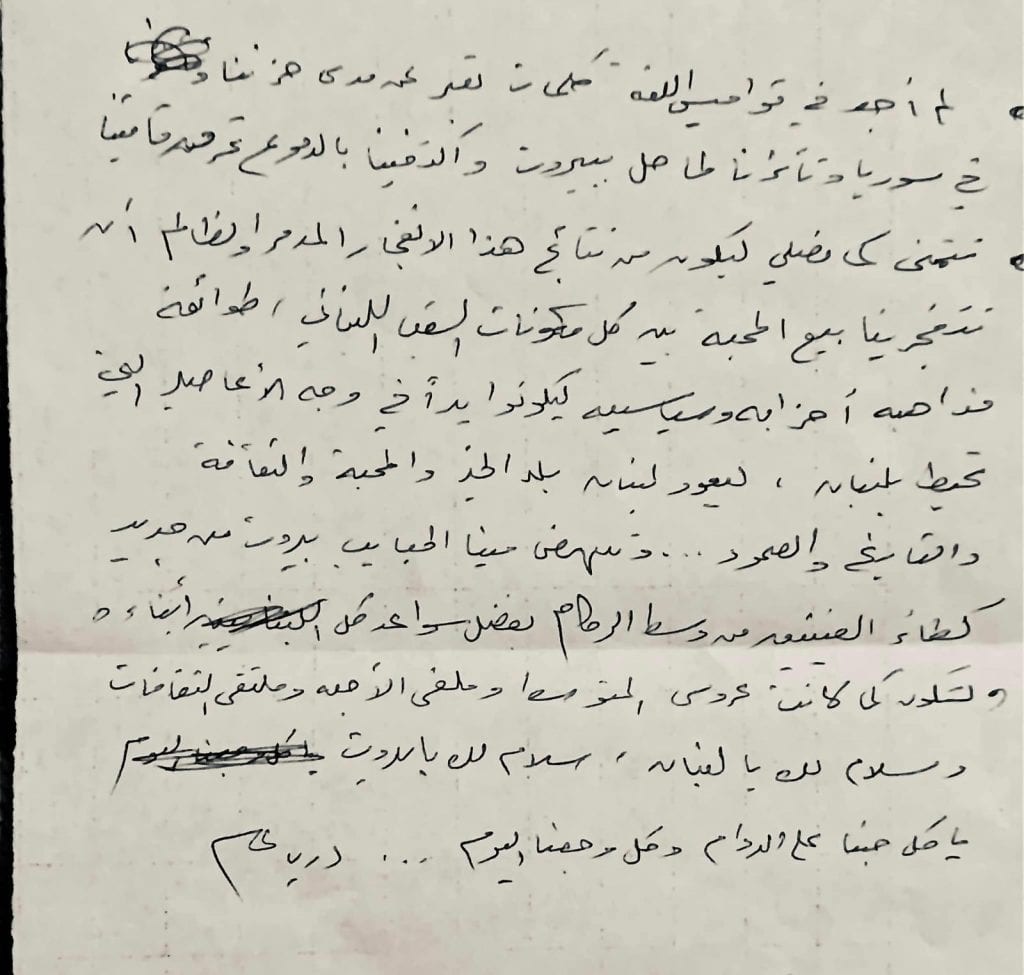 • لم أجد في قواميس اللغة كلمات تعبر عن مدى حزننا
في سوريا وتأثرنا لما حل ببيروت واكتفينا بالدموع تحرق مآقينا
• نتمنى كما فضلي ليكون من نتائج هذا الانفجار المدمر والظالم أن
تتفجر ينابيع المحبة بين كل مكونات الشعب اللبناني، طوائفه
مذاهبه أحزابه وسياسييه ليكونوا يداً في وجه الأعاصير التي
تحيط بلبنان، ليعود لبنان بلد الخير والمحبة والثقافة
والتاريخ والصمود ... وتنهض مينا الحبايب بيروت من جديد
كطائر الفينيق من وسط الركام بفضل سواعد كل أبناءه
ولتكون كما كانت عروس المتوسط وملفى الأحبه وملتقى الثقافات
وسلام لك يا لبنان، سلام لك يا بيروت
يا كل حبنا على الدوام وكل وجعنا اليوم ...